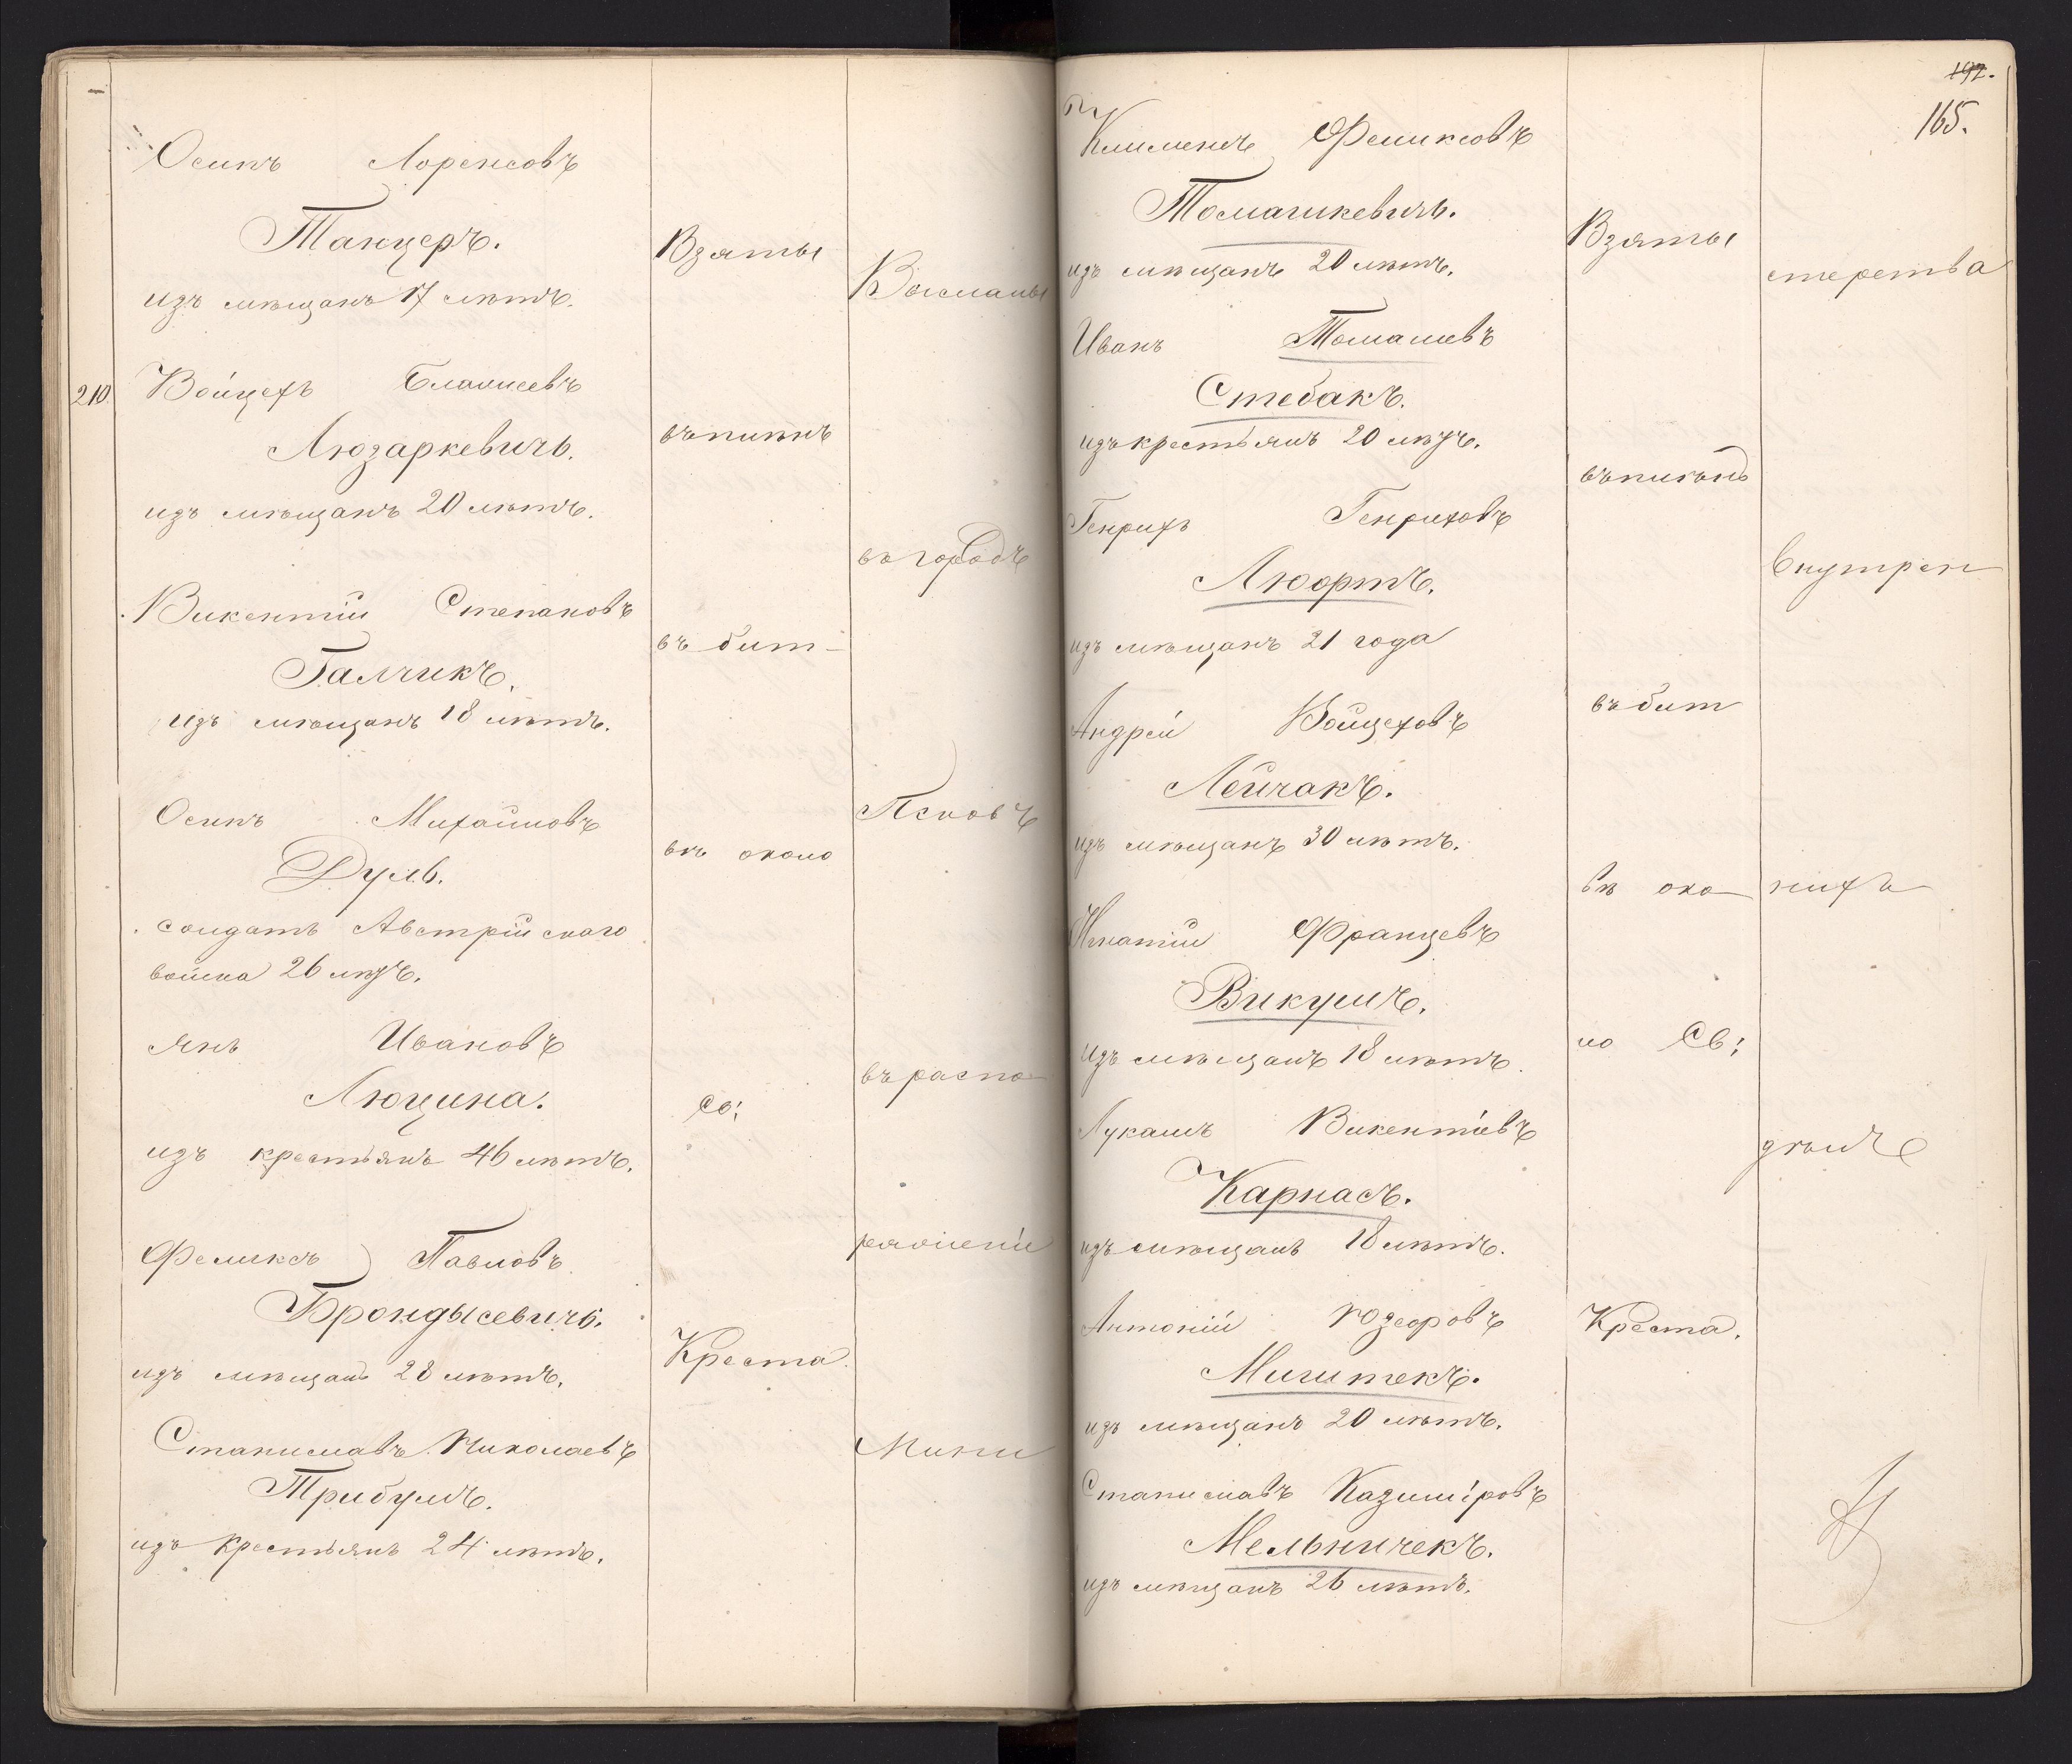 Осипъ Лоренсовъ
Танцеръ.
изъ мѣщанъ 17 лѣтъ.
210. Войцехъ Блажеевъ
Люзаркевичъ.
изъ мѣщанъ 20 лѣтъ.
Викентій Степановъ
Галчикъ.
изъ мѣщанъ 18 лѣтъ.
Осипъ Михайловъ
Дуль.
солдатъ Австрійскаго
войска 26 лѣтъ.
Янъ Ивановъ
Люцина.
изъ крестьянъ 46 лѣтъ.
Феликсъ Павловъ
Брондысевичъ.
изъ мѣщанъ 28 лѣтъ.
Станиславъ Николаевъ
Трибулъ.
изъ крестьянъ 24 лѣтъ.
Взяты
въ плѣнъ
въ бит-
вѣ около
Св:
Креста.
Высланы
въ городъ
Псковъ
въ распо
ряженіе
Мини
192.
165.
Климентъ Феликсовъ
Томашкевичъ.
изъ мѣщанъ 20 лѣтъ.
Иванъ Томашевъ
Стебакъ.
изъ крестьянъ 20 лѣтъ.
Генрихъ Генриховъ
Люфтъ.
изъ мѣщанъ 21 года
Андрей Войцеховъ
Лейчакъ.
изъ мѣщанъ 30 лѣтъ.
Игнатій Францевъ
Викулъ.
изъ мѣщанъ 18 лѣтъ.
Лукашъ Викентіевъ
Карнасъ.
изъ мѣщанъ 18 лѣтъ.
Антоній Юзефовъ
Мигитекъ.
изъ мѣщанъ 20 лѣтъ.
Станиславъ Казиміровъ
Мельничекъ.
изъ мѣщанъ 26 лѣтъ.
Взяты
въ плѣнъ
въ бит
вѣ око
ло Св:
Креста.
стерства
внутрен
нихъ
дѣлъ